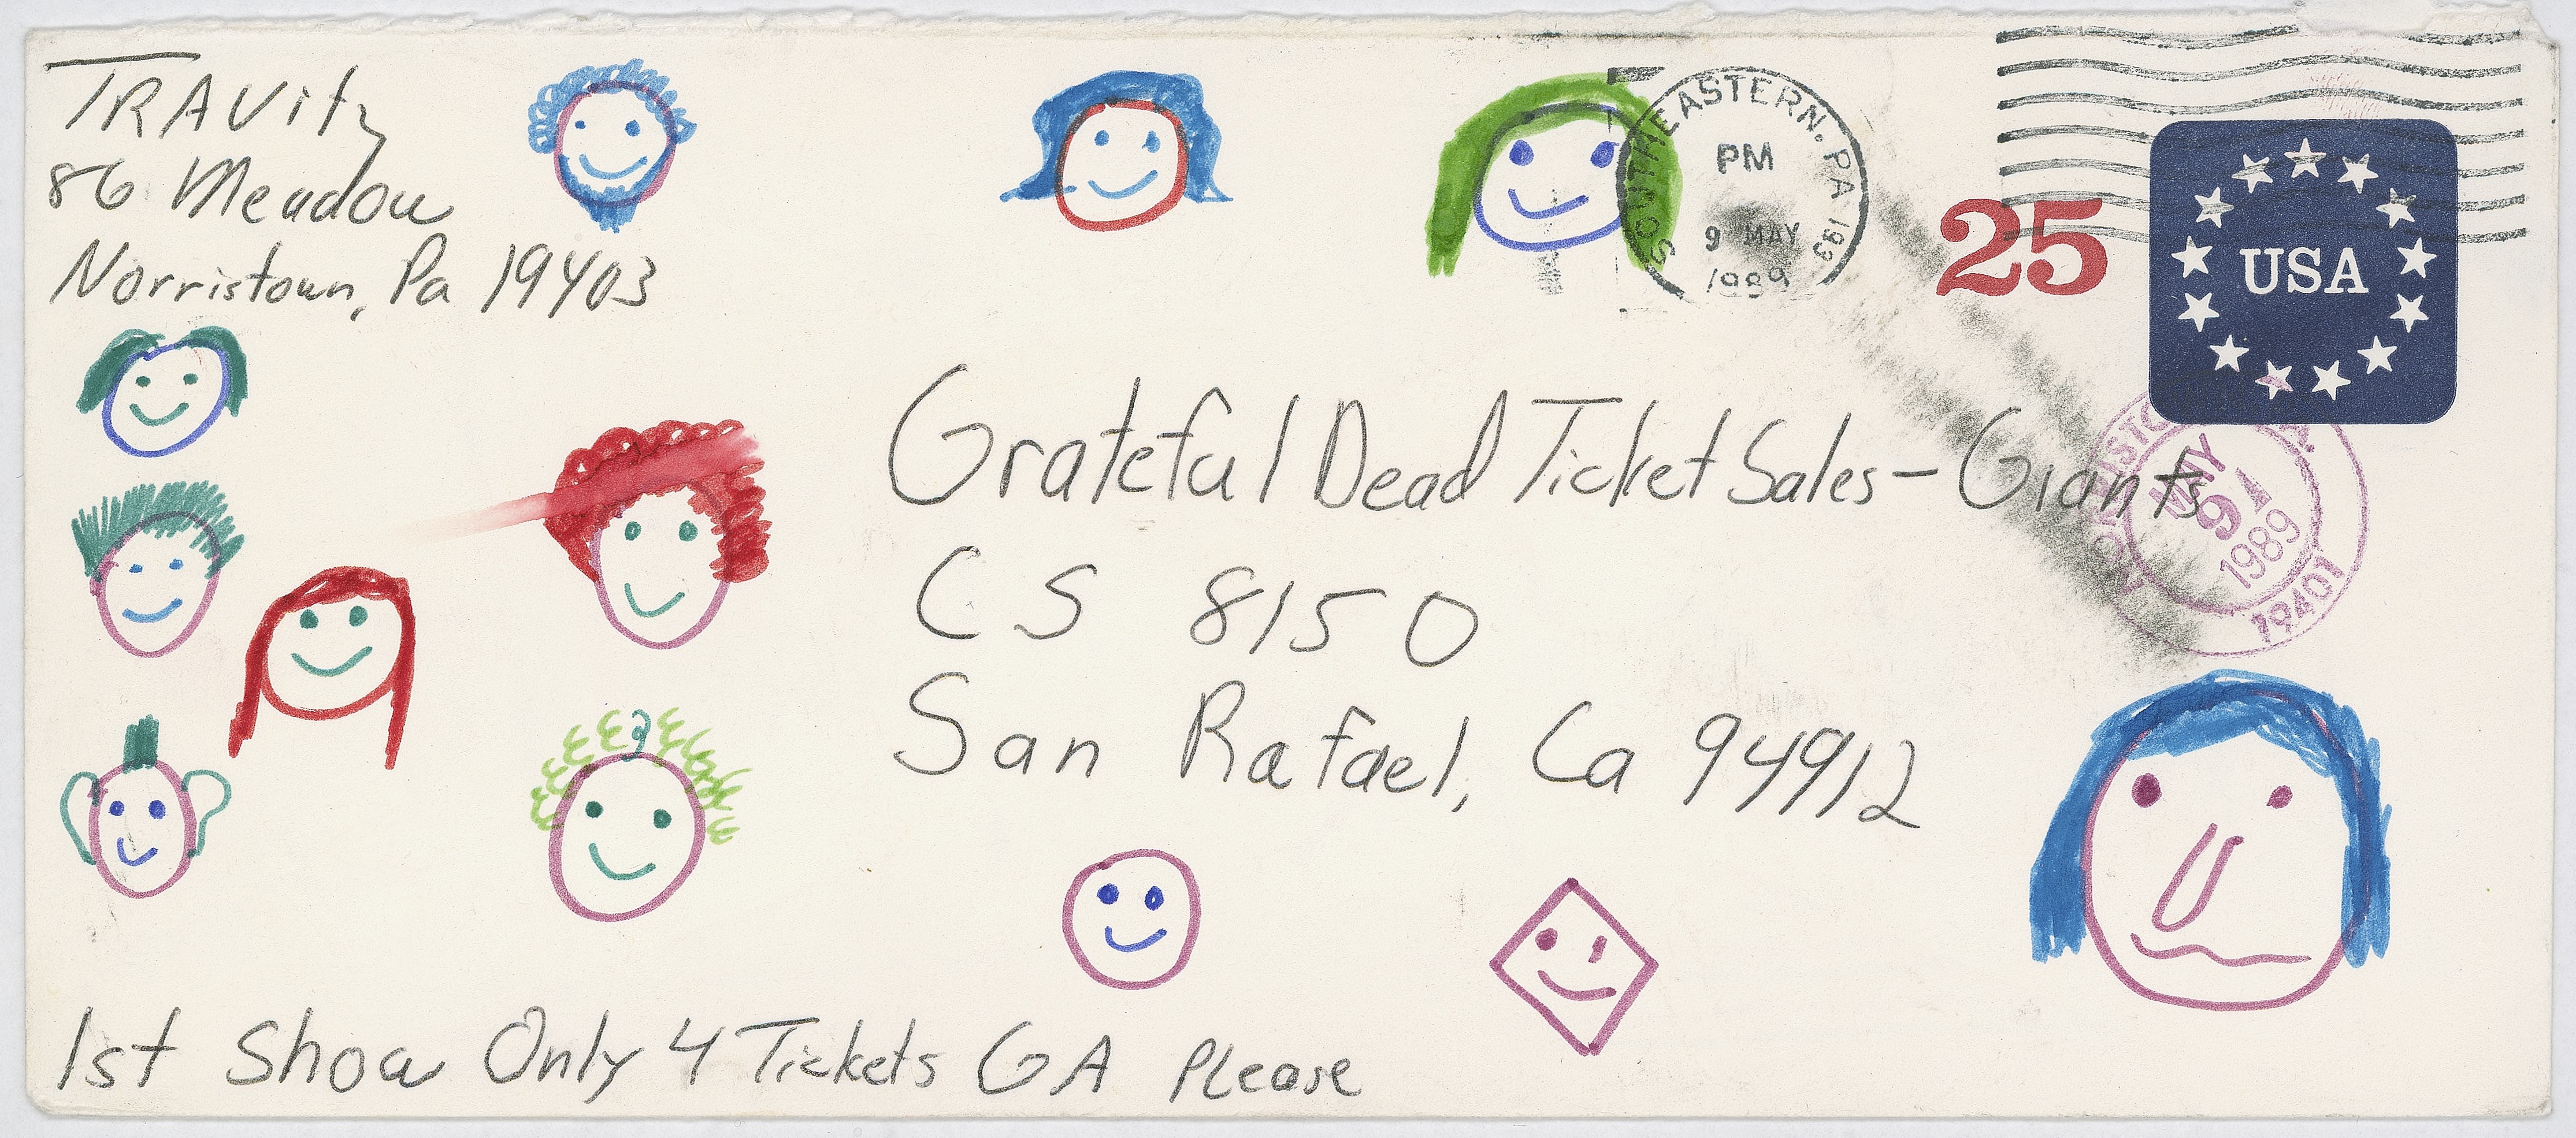 TRAVity
86 Meadow
Norristown, Pa 19403
SOUTHEASTERN, PA 193
PM
9 MAY
1989
25
USA
Grateful Dead Ticket Sales - Giants
CS 8150
San Rafael, Ca 94912
MAY
9
1989
19401
1st Show Only 4 Tickets GA Please